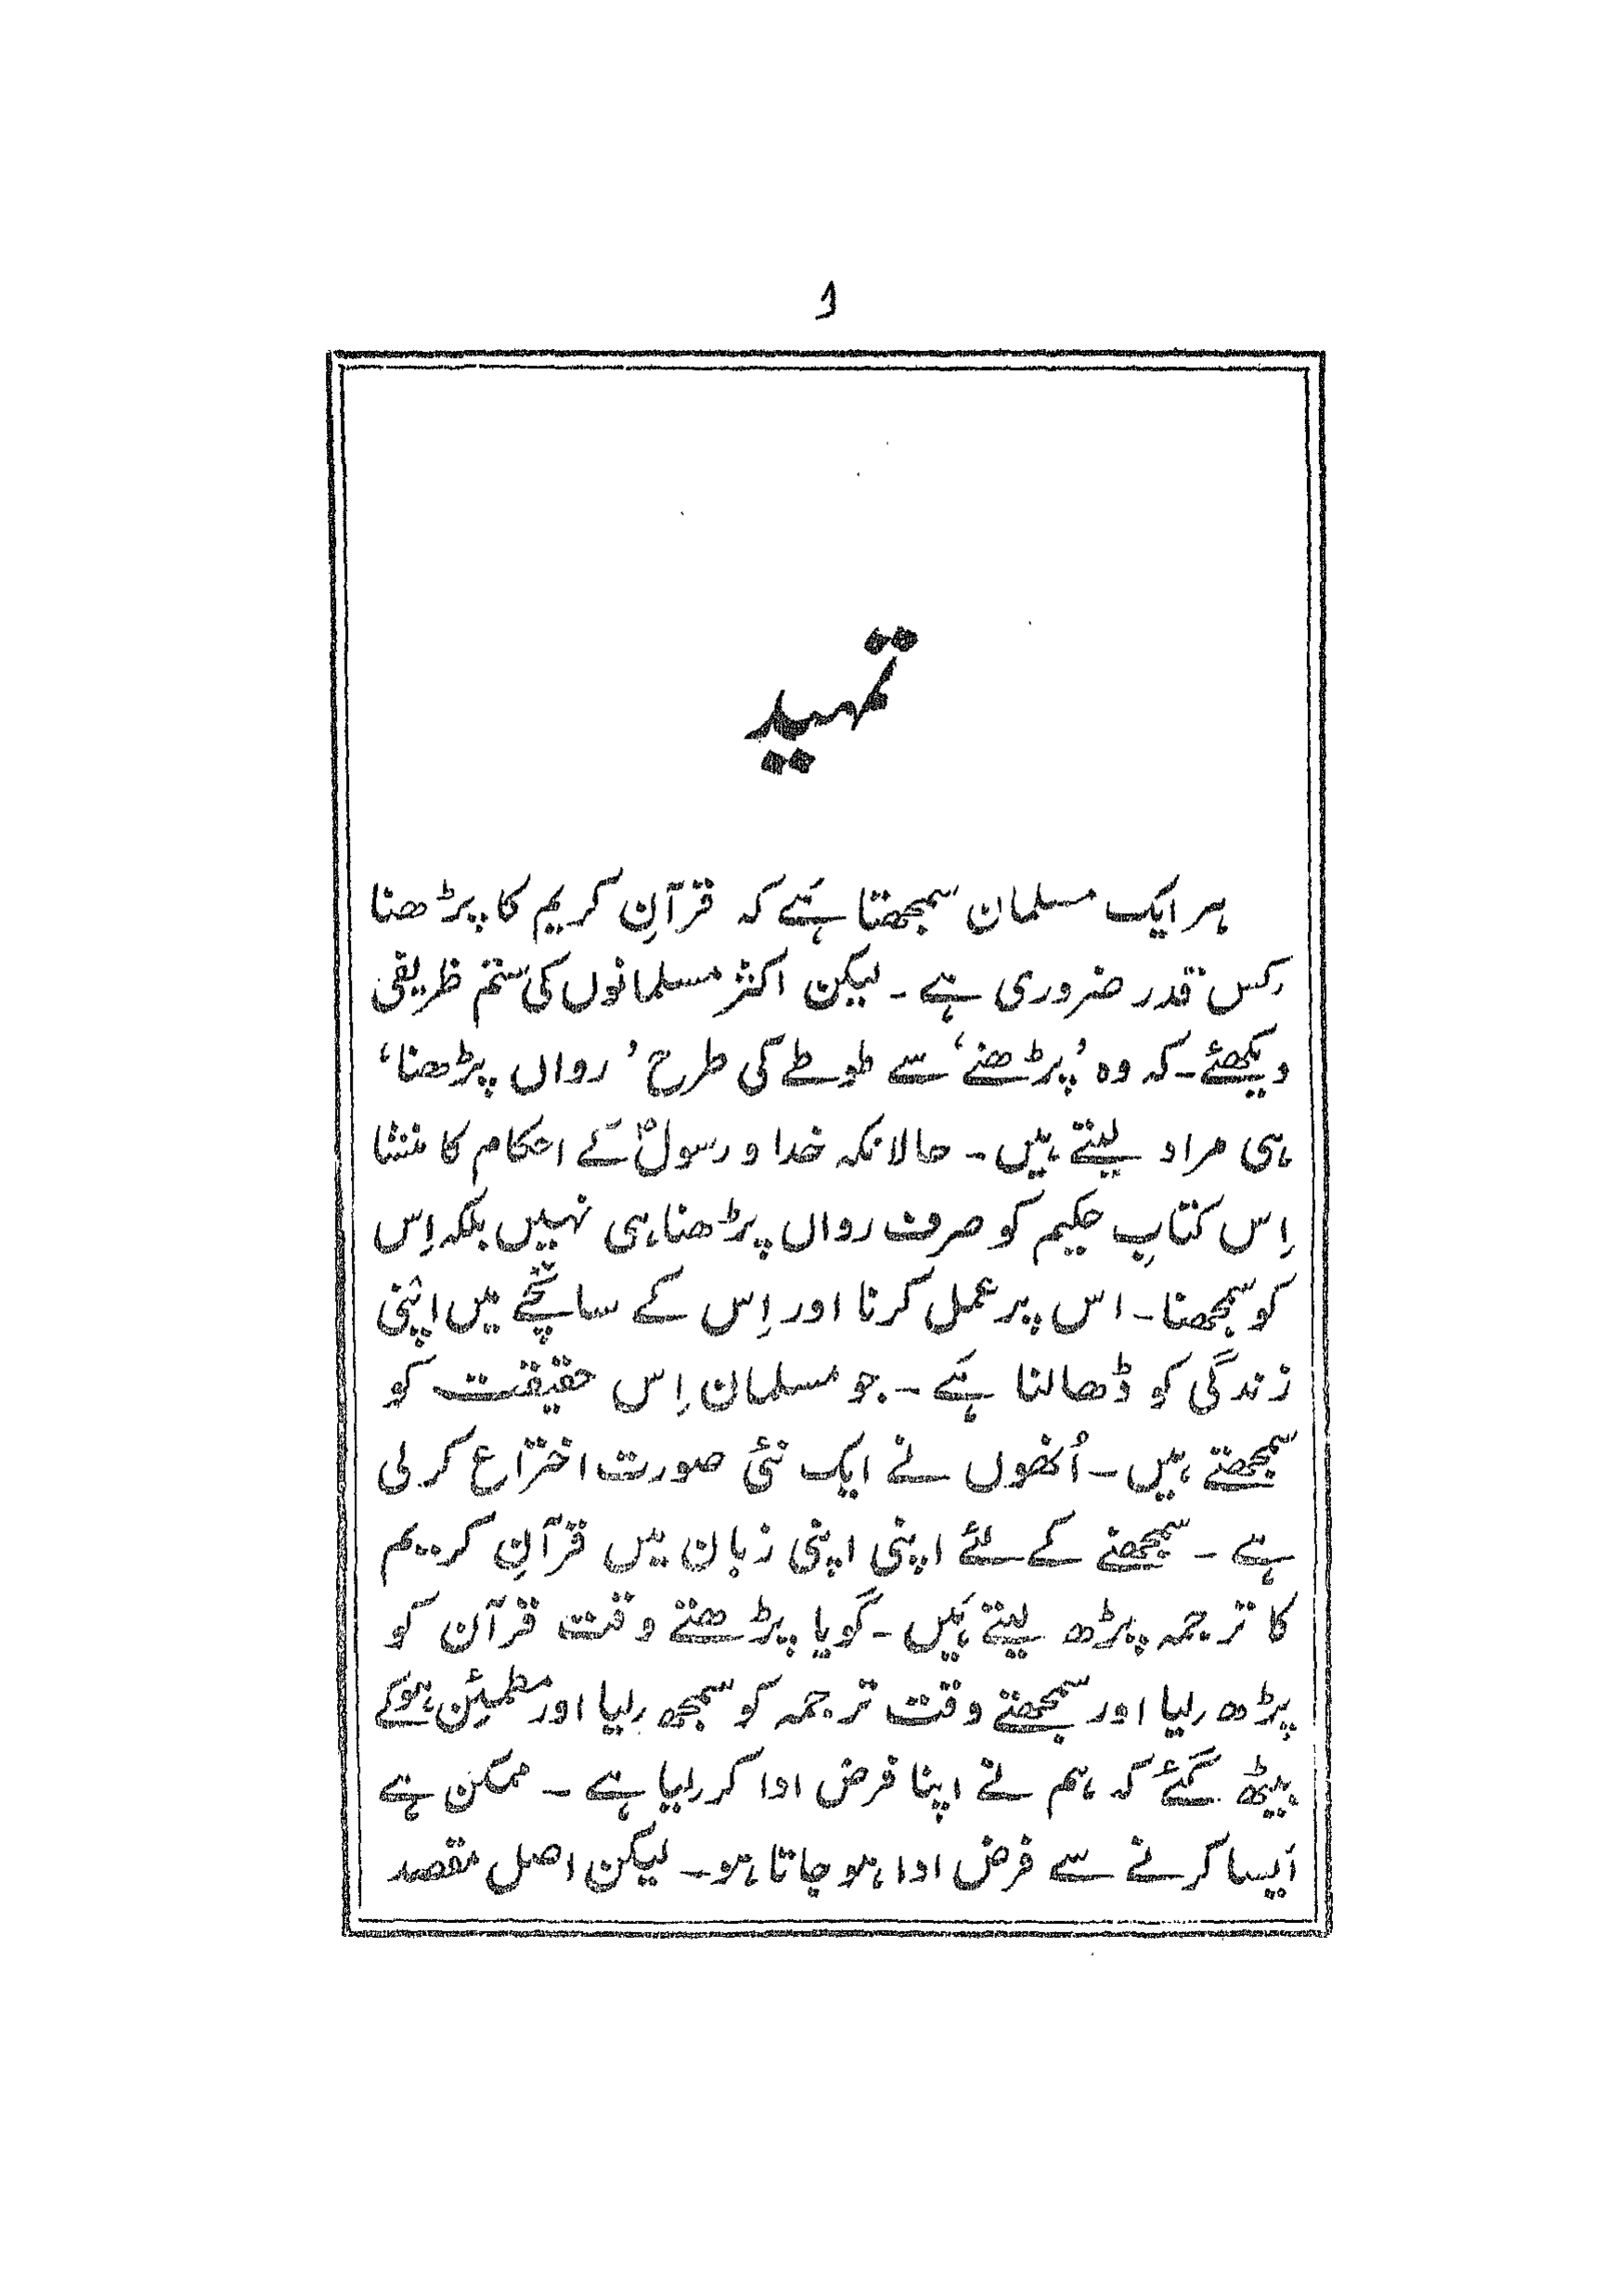 و
تمہید
ہر ایک مسلمان سمجھتا ہَے کہ قرآنِ کریم کا پڑھنا
کِس قدر ضروری ہے۔ لیکن اکثر مسلمانوں کی ستم ظریفی
دیکھئے۔ کہ وہ ’پڑھنے‘ سے طوطے کی طرح ’رواں پڑھنا‘
ہی مراد لیتے ہیں۔ حالانکہ خدا و رسولؐ کے احکام کا منشا
اِس کتابِ حکیم کو صرف رواں پڑھنا ہی نہیں بلکہ اِس
کو سمجھنا۔ اس پر عمل کرنا اور اِس کے سانچے میں اپنی
زندگی کو ڈھالنا ہَے۔ جو مسلمان اِس حقیقت کو
سمجھتے ہیں۔ اُنھوں نے ایک نئی صورت اختراع کر لی
ہے۔ سمجھنے کے لئے اپنی اپنی زبان میں قرآنِ کریم
کا ترجمہ پڑھ لیتے ہَیں۔ گویا پڑھتے وقت قرآن کو
پڑھ لِیا اور سمجھتے وقت ترجمہ کو سمجھ لِیا اور مطمئِن ہوکے
بیٹھ گئے کہ ہم نے اپنا فرض ادا کر لِیا ہے۔ ممکن ہے
اَیسا کرنے سے فرض ادا ہو جاتا ہو۔ لیکن اصل مقصد